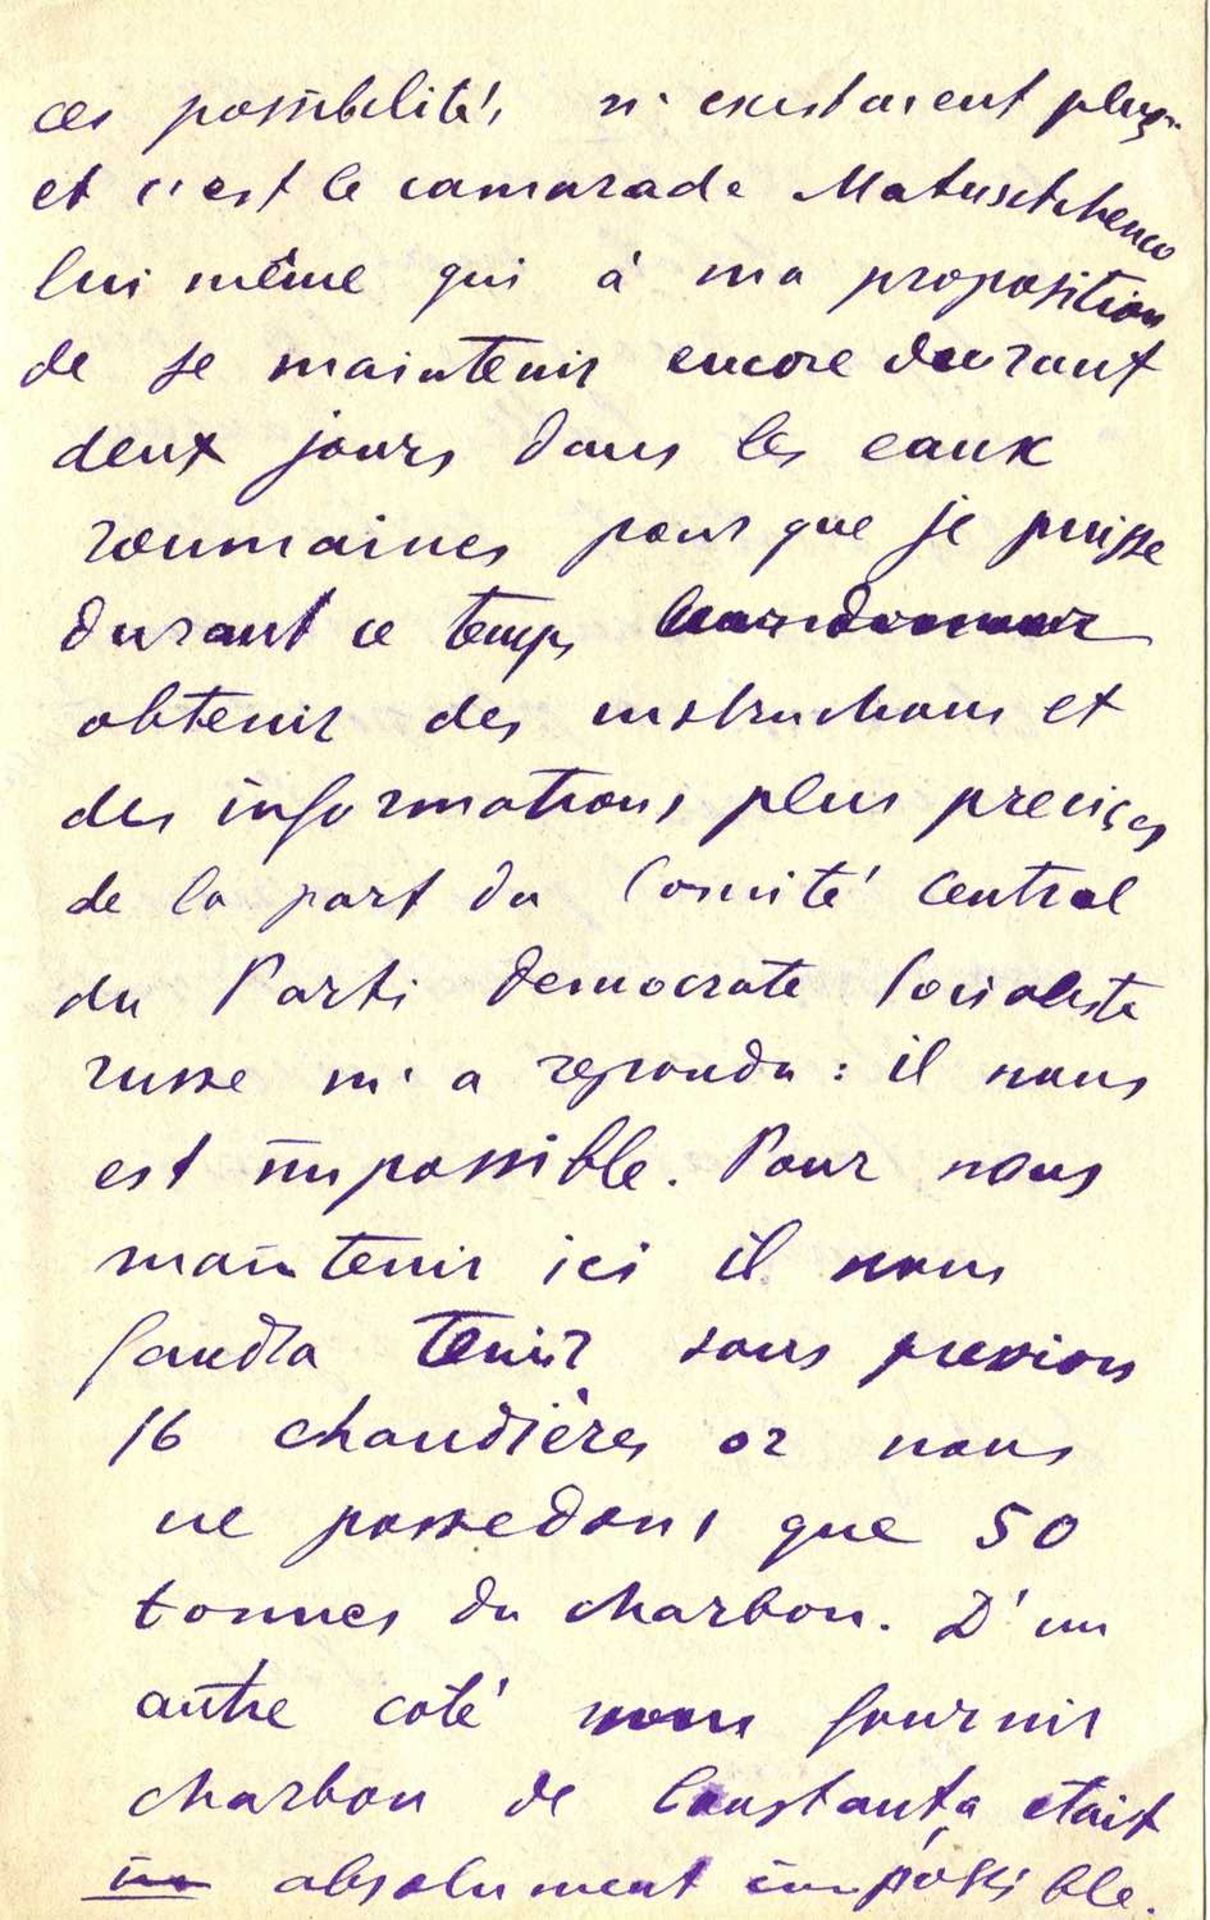 ces possibilités n'existaient plus
et c'est le camarade Matuschhenco
lui même qui à ma proposition
de se maintenir encore durant
deux jours dans les eaux
roumaines pour que je puisse
durant ce temps
obtenir des instructions et
des informations plus precises
de la part du Comité Central
du Parti Democrate Socialiste
russe m'a repondu : il nous
est impossible. Pour nous
maintenir ici il nous
faudra tenir sous pression
16 chaudières or nous
ne possedons que 50
tonnes du charbon. D'un
autre coté nous fournir
charbon de Constanța etait
absolument impossible.